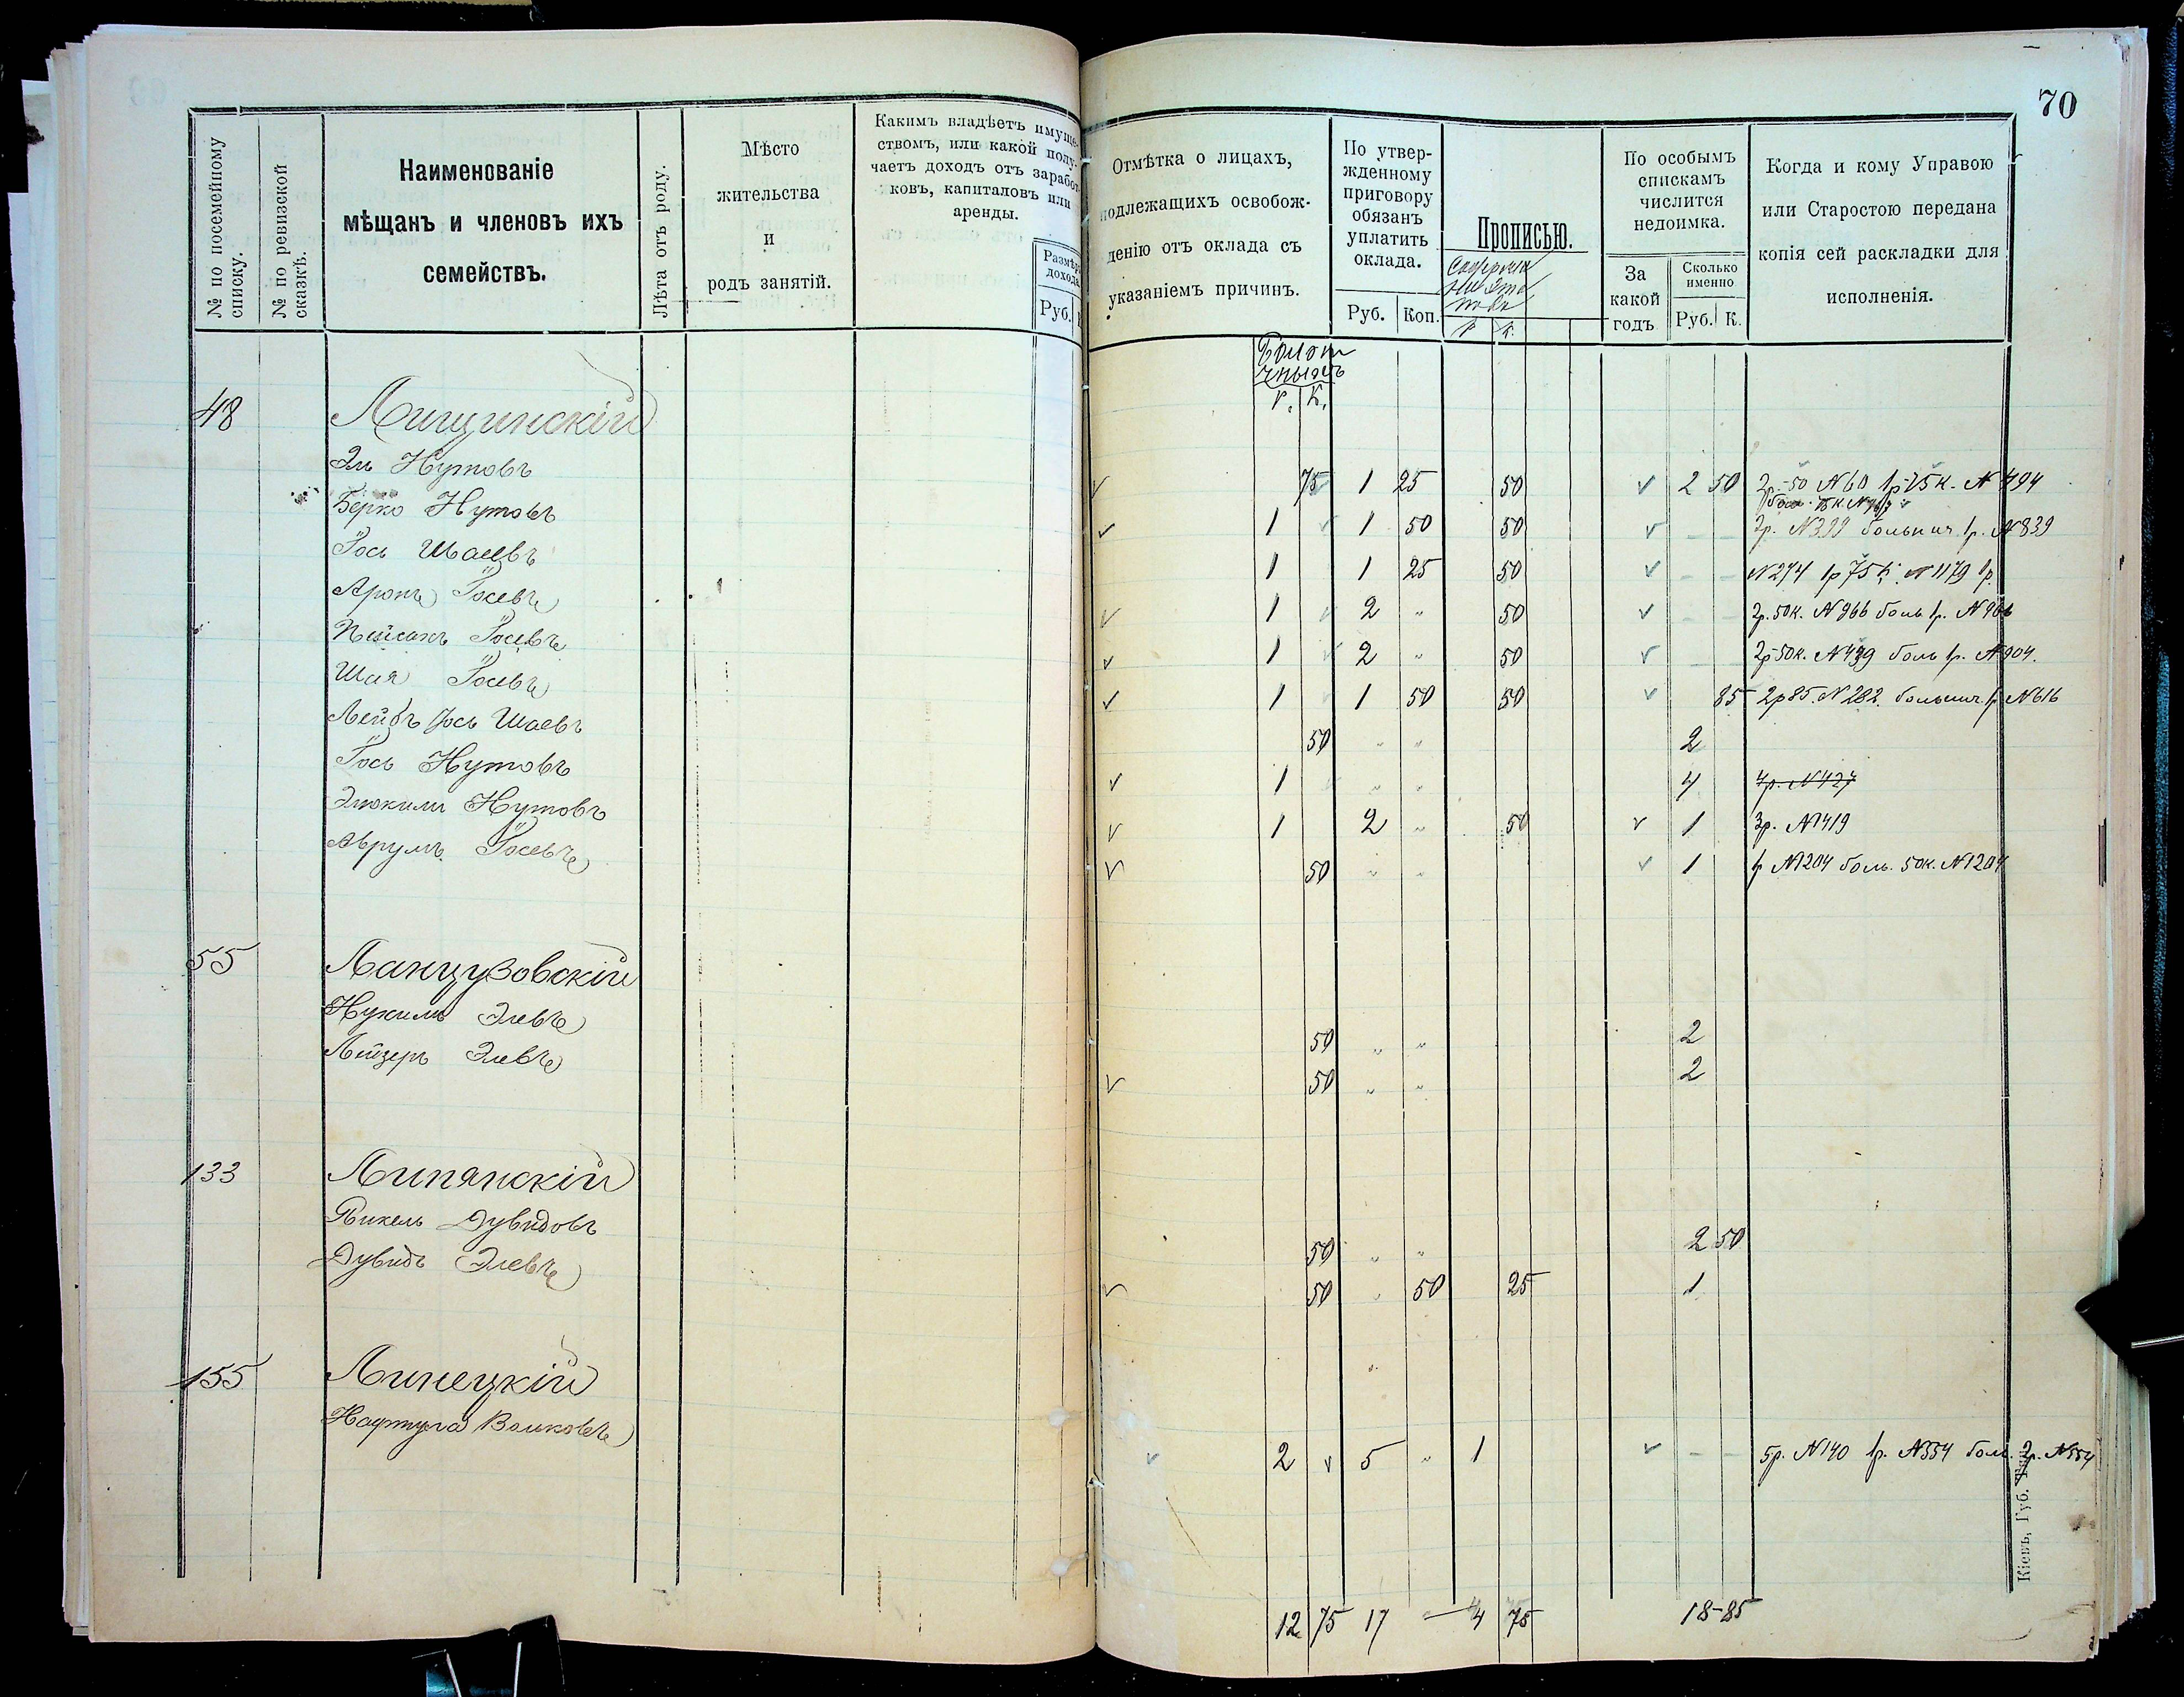 70
№ по посемейному списку.
№ по ревизской сказкѣ.
Наименованіе
мѣщанъ и членовъ ихъ
семействъ.
Лѣта отъ роду.
Мѣсто
жительства
и
родъ занятій.
Какимъ владѣетъ имуще-
ствомъ, или какой полу-
чаетъ доходъ отъ заработ-
ковъ, капиталовъ или
аренды.
Размѣръ
дохода
Руб.
Отмѣтка о лицахъ,
подлежащихъ освобож-
денію отъ оклада съ
указаніемъ причинъ.
По утвер-
жденному
приговору
обязанъ
уплатить
оклада.
Руб. Коп.
Прописью.
Р К.
По особымъ
спискамъ
числится
недоимка.
За
какой
годъ
Сколько
именно
Руб. К.
Когда и кому Управою
или Старостою передана
копія сей раскладки для
исполненія.
Р. К.
48 Лищинскій
Эль Нутовъ 75 1 25 50 2 50 2р-50 №60 1р-25к. №494
Берко Нутовъ 1 1 50 50 2р. №399 больнич 1р. №839
Іось Шаевъ 1 1 25 50 №274 1р 75к. №1179 1р.
Аронъ Іосевъ 1 2 " 50 2р. 50к. №966 боль 1р. №966
Пейсахъ Іосевъ 1 2 " 50 2р 50к. №439 боль 1р. №904.
Шая Іосевъ 1 1 50 50 85 2р85. №282. больнич. 1р №616
Лейбъ Іось Шаевъ 50 " " 2
Іось Нутовъ 1 " " 4 4р. №427
Нутовъ 1 2 " 50 1 3р. №1419
Аврумъ Іосевъ 50 " " 1 1р №1204 боль. 50к. №1204
55 Ланцузовскій
Нухимъ Элевъ 50 " " 2
Лейзеръ Элевъ 50 " " 2
133 Липянскій
Дувидовъ 50 " " 2 50
Дувидъ Элевъ 50 " 50 25 1
155 Линецкій
Нафтула Волковъ 2 5 " 1 5р. №140 1р. №554 боль. 2р. №554
12 75 17 — 4 75 18-85
Кіевъ, Губ. Тип.